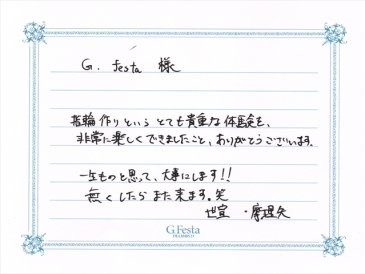 G. festa 様
指輪作りという とても貴重な体験を、
非常に楽しくできましたこと、ありがとうございます。
一生ものと思って、大事にします!!
無くしたら また来ます。笑
世宣 ・摩理矢
G.Festa